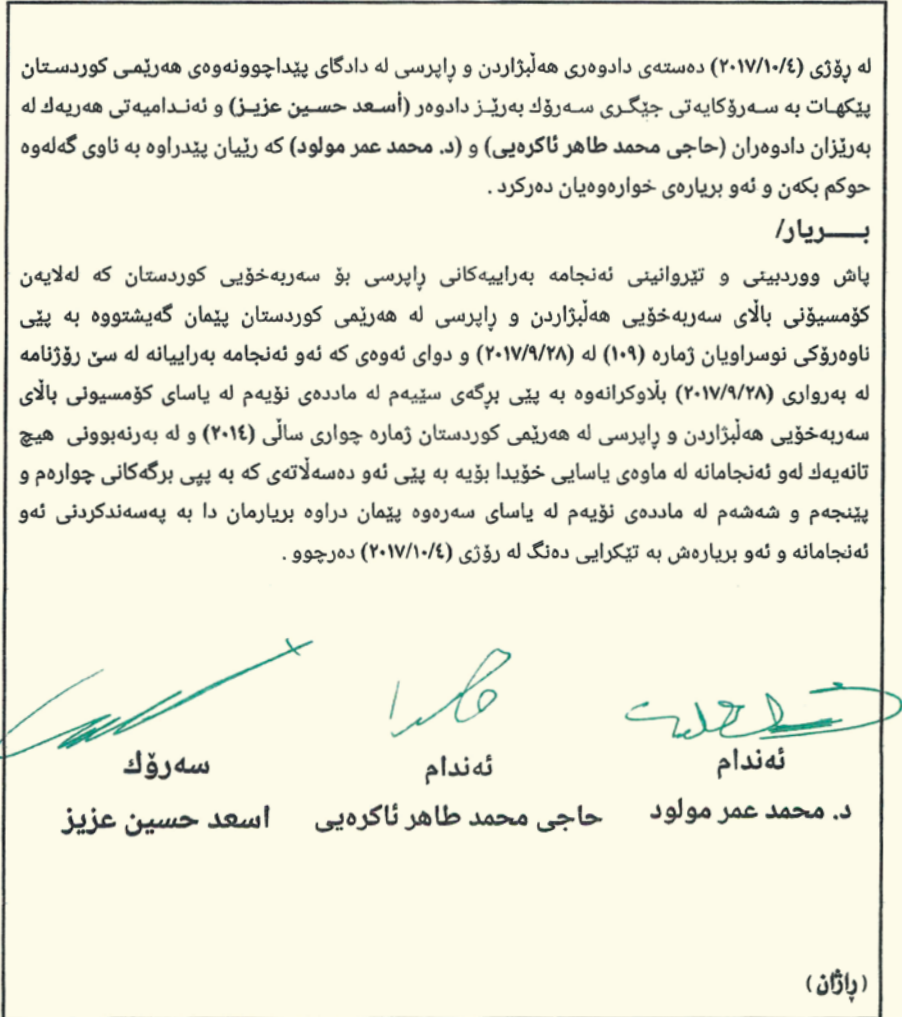 لە ڕۆژی (٢٠١٧/١٠/٤) دەستەی دادوەری هەڵبژاردن و ڕاپرسی لە دادگای پێداچوونەوەی هەرێمی کوردستان
پێکهات بە سەرۆکایەتی جێگری سەرۆك بەرێز دادوەر (أسعد حسين عزيز) و ئەندامیەتی هەریەك لە
بەرێزان دادوەران (حاجی محمد طاهر ئاکرەیی) و (د. محمد عمر مولود) کە رێیان پێدراوە بە ناوی گەلەوە
حوکم بکەن و ئەو بریارەی خوارەوەیان دەرکرد .
بـــــریار/
پاش ووردبینی و تێروانینی ئەنجامە بەراییەکانی ڕاپرسی بۆ سەربەخۆیی کوردستان کە لەلایەن
کۆمسیۆنی باڵای سەربەخۆیی هەڵبژاردن و ڕاپرسی لە هەرێمی کوردستان پێمان گەیشتووە بە پێی
ناوەرۆکی نوسراویان ژمارە (١٠٩) لە (٢٠١٧/٩/٢٨) و دوای ئەوەی کە ئەو ئەنجامە بەراییانە لە سێ رۆژنامە
لە بەرواری (٢٠١٧/٩/٢٨) بڵاوکرانەوە بە پێی برگەی سێیەم لە ماددەی نۆیەم لە یاسای کۆمسیونی باڵای
سەربەخۆیی هەڵبژاردن و ڕاپرسی لە هەرێمی کوردستان ژمارە چواری ساڵی (٢٠١٤) و لە بەرنەبوونی هیچ
تانەیەك لەو ئەنجامانە لە ماوەی یاسایی خۆیدا بۆیە بە پێی ئەو دەسەڵاتەی کە بە پیی برگەکانی چوارەم و
پێنجەم و شەشەم لە ماددەی نۆیەم لە یاسای سەرەوە پێمان دراوە بریارمان دا بە پەسەندکردنی ئەو
ئەنجامانە و ئەو بریارەش بە تێکرایی دەنگ لە رۆژی (٢٠١٧/١٠/٤) دەرچوو .
ئەندام ئەندام سەرۆك
د. محمد عمر مولود حاجی محمد طاهر ئاکرەیی اسعد حسين عزيز
(ڕاژان)